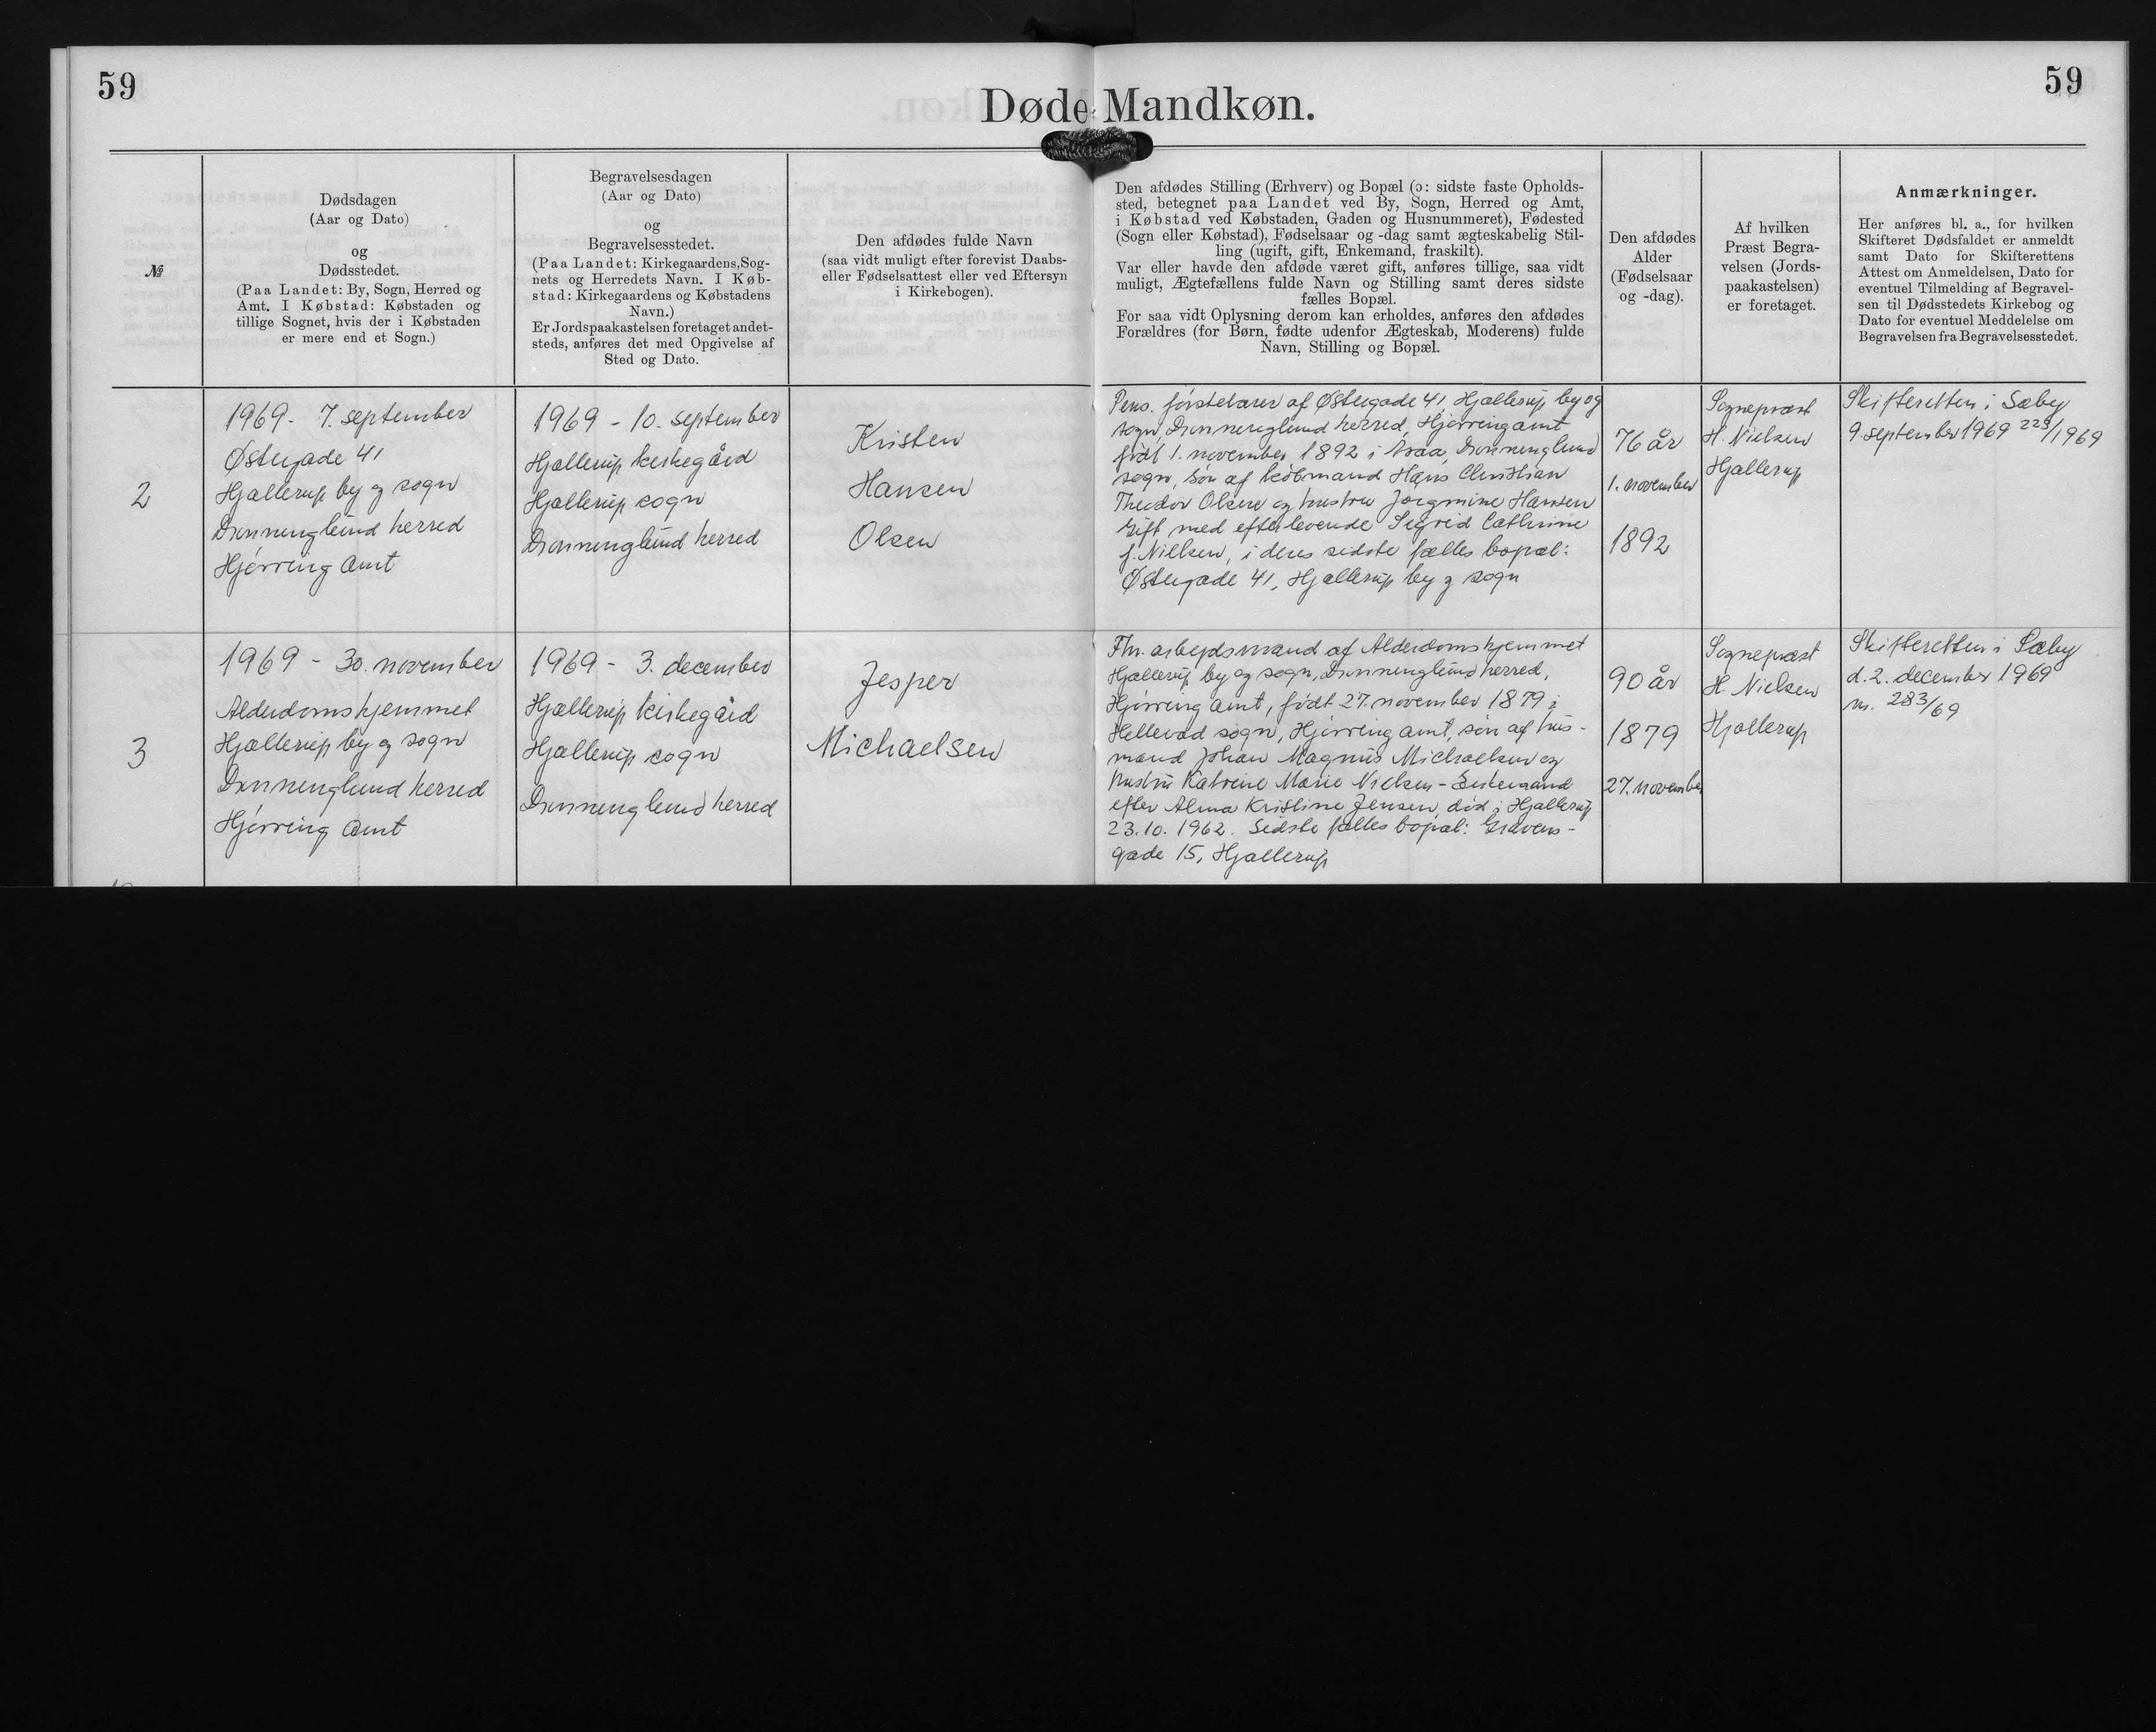 59
59
Døde Mandkøn.
№
Dødsdagen
(Aar og Dato)
og
Dødsstedet.
(Paa Landet: By, Sogn, Herred og
Amt. I Købstad: Købstaden og
tillige Sognet, hvis der i Købstaden
er mere end et Sogn.)
Begravelsesdagen
(Aar og Dato)
og
Begravelsesstedet.
(Paa Landet: Kirkegaardens, Sog-
nets og Herredets Navn. I Køb-
stad: Kirkegaardens og Købstadens
Navn.)
Er Jordspaakastelsen foretaget andet-
steds, anføres det med Opgivelse af
Sted og Dato.
Den afdødes fulde Navn
(saa vidt muligt efter forevist Daabs-
eller Fødselsattest eller ved Eftersyn
i Kirkebogen).
Den afdødes Stilling (Erhverv) og Bopæl (ɔ: sidste faste Opholds-
sted, betegnet paa Landet ved By, Sogn, Herred og Amt,
i Købstad ved Købstaden, Gaden og Husnummeret), Fødested
(Sogn eller Købstad), Fødselsaar og -dag samt ægteskabelig Stil-
ling (ugift, gift, Enkemand, fraskilt).
Var eller havde den afdøde været gift, anføres tillige, saa vidt
muligt, Ægtefællens fulde Navn og Stilling samt deres sidste
fælles Bopæl.
For saa vidt Oplysning derom kan erholdes, anføres den afdødes
Forældres (for Børn, fødte udenfor Ægteskab, Moderens) fulde
Navn, Stilling og Bopæl.
Den afdødes
Alder
(Fødselsaar
og -dag).
Af hvilken
Præst Begra-
velsen (Jords-
paakastelsen)
er foretaget.
Anmærkninger.
Her anføres bl. a., for hvilken
Skifteret Dødsfaldet er anmeldt
samt Dato for Skifterettens
Attest om Anmeldelsen, Dato for
eventuel Tilmelding af Begravel-
sen til Dødsstedets Kirkebog og
Dato for eventuel Meddelelse om
Begravelsen fra Begravelsesstedet.
2
1969 - 7. september
Østergade 41
Hjallerup by og sogn
Dronninglund herred
Hjørring Amt
1969 - 10. september
Hjallerup kirkegård
Hjallerup sogn
Dronninglund herred
Kristen
Hansen
Olsen
Pens. førstelærer af Østergade 41 Hjallerup by og
sogn, Dronninglund herred, Hjørring amt
født 1. november 1892 i Asaa, Dronninglund
sogn, søn af købmand Hans Christian
Theodor Olsen og hustru Jørgmine Hansen
Gift med efterlevende Sigrid Cathrine
f. Nielsen, i deres sidste fælles bopæl:
Østergade 41, Hjallerup by og sogn
76 år
1. november
1892
Sognepræst
H. Nielsen
Hjallerup
Skifteretten i Sæby
9. september 1969 223/1969
3
1969 - 30. november
Alderdomshjemmet
Hjallerup by og sogn
Dronninglund herred
Hjørring Amt
1969 - 3. december
Hjallerup kirkegård
Hjallerup sogn
Dronninglund herred
Jesper
Michaelsen
Fhv. arbejdsmand af Alderdomshjemmet
Hjallerup by og sogn, Dronninglund herred,
Hjørring amt, født 27. november 1879 i
Hellevad sogn, Hjørring amt, søn af hus-
mand Johan Magnus Michaelsen og
hustru Katrine Marie Nielsen - Enkemand
efter Alma Kristine Jensen, død i Hjallerup
23.10.1962. Sidste fælles bopæl: Gravens-
gade 15, Hjallerup
90 år
1879
27. november
Sognepræst
H. Nielsen
Hjallerup
Skifteretten i Sæby
d. 2. december 1969
nr. 283/69